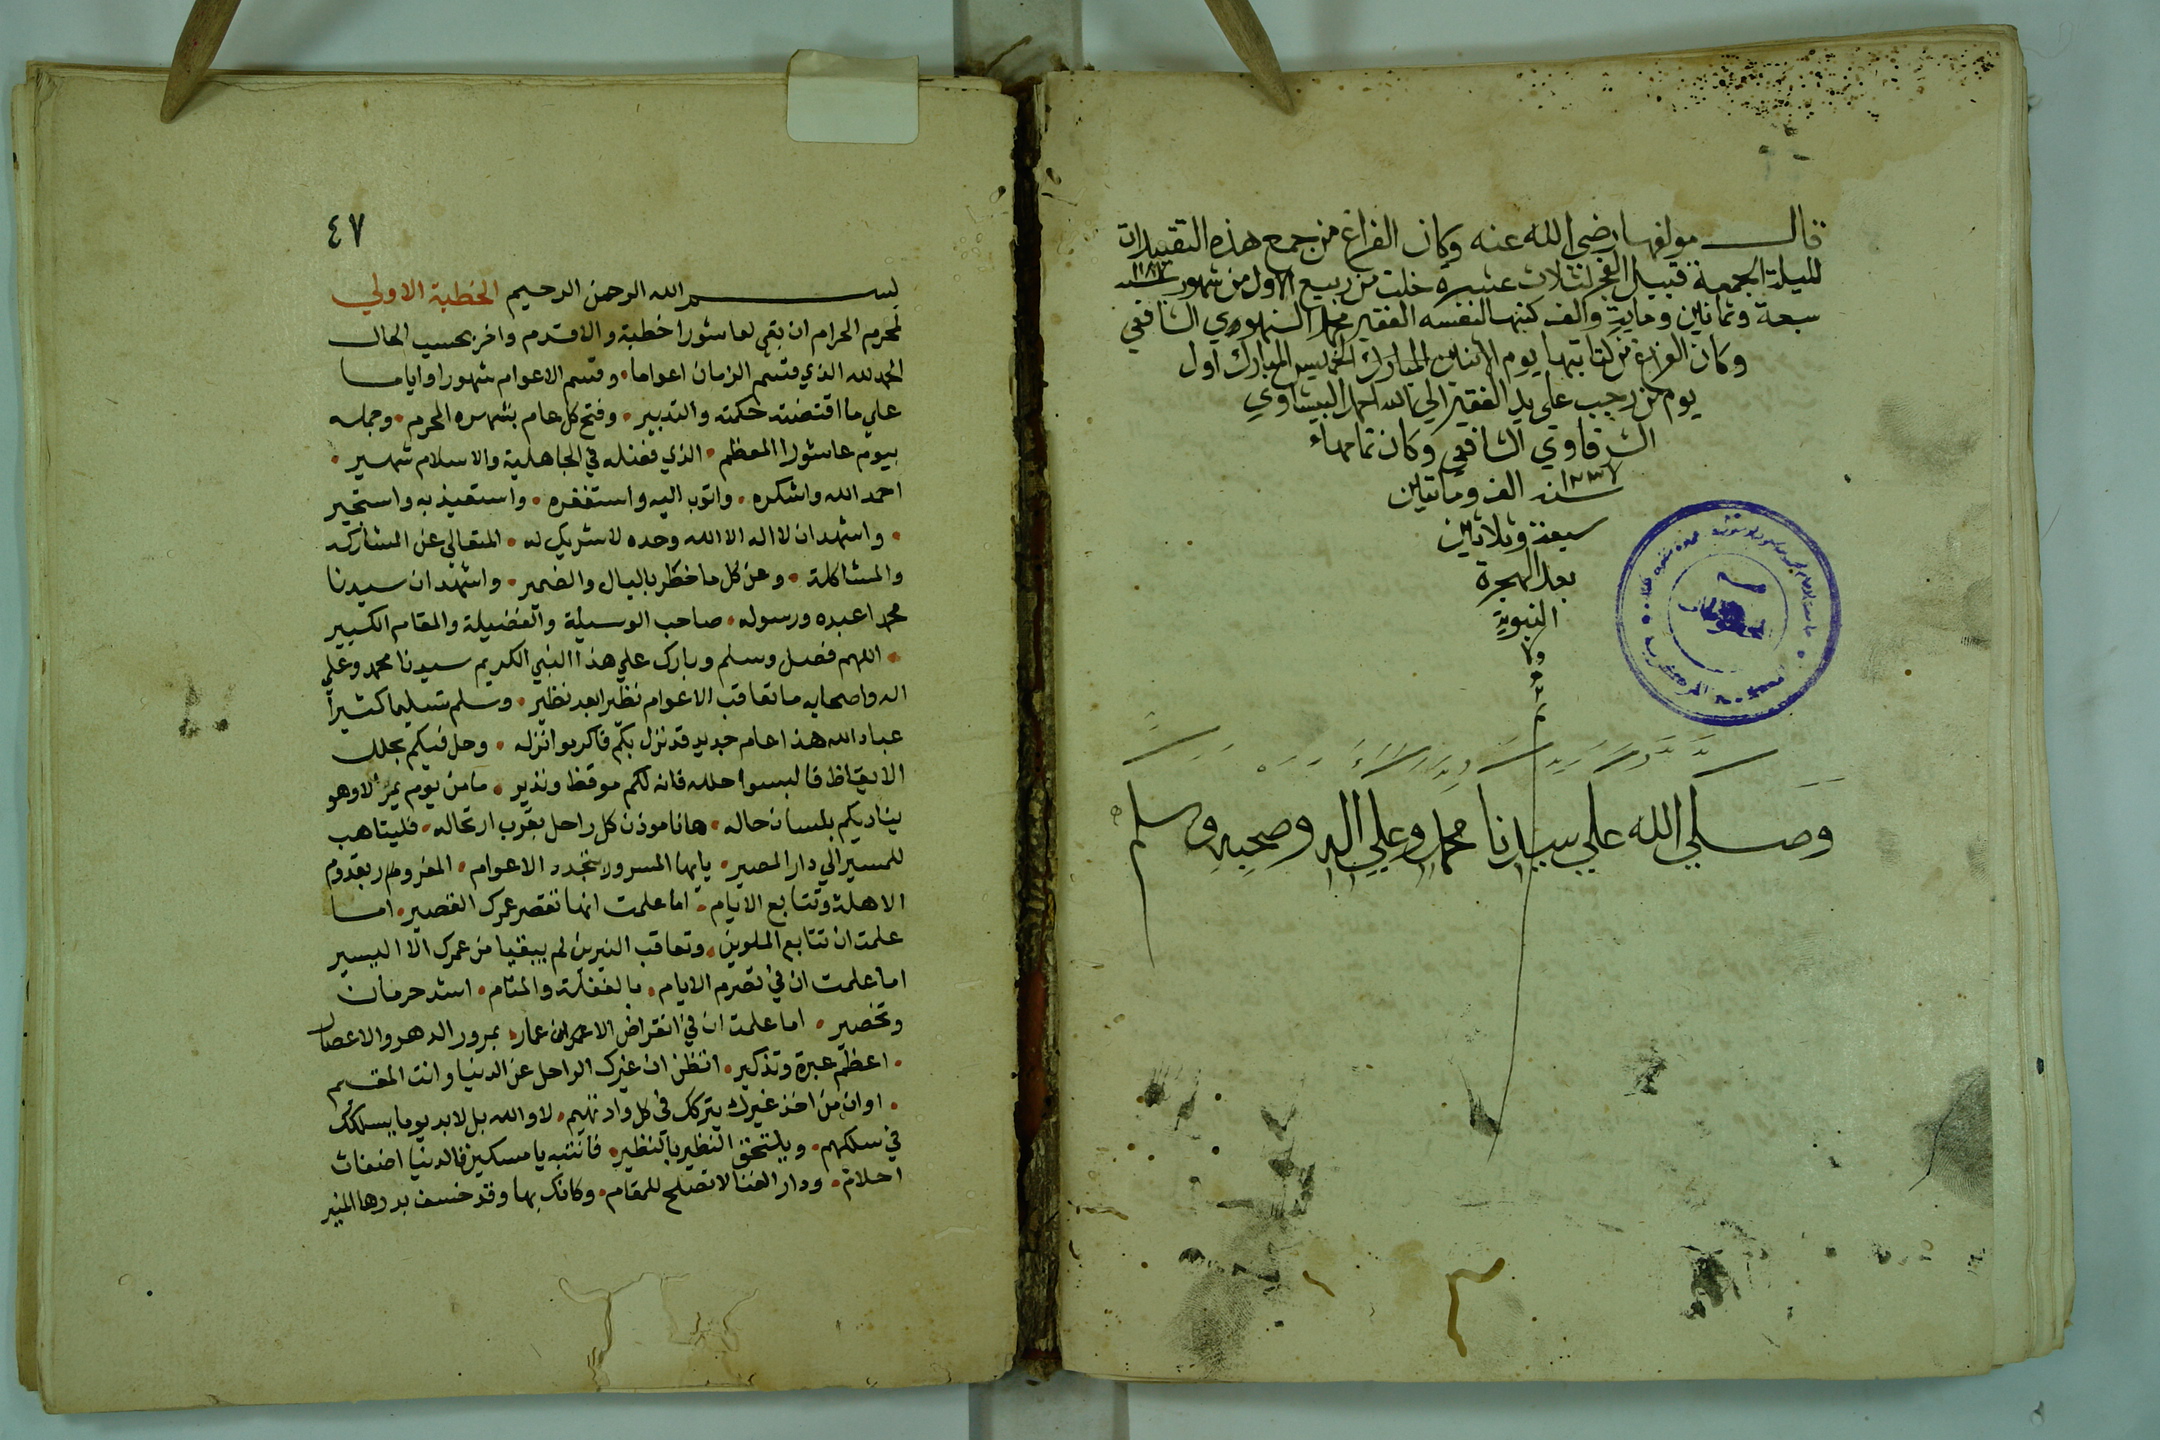 قال مولفها رضي الله عنه وكان الفراغ من جمع هذه التقييدات
لليلة الجمعة قبيل الفجر لثلاث عشرة خلت من ربيع الاول من شهور سنة ١١٨٧
سبعة وثمانين وماية والف كتبها لنفسه الفقير محمد السنهوري الشافعي
وكان الفراغ من كتابتها يوم الاثنين المبارك الخميس المبارك اول
يوم من رجب على يد الفقير الي الله احمد البيشاوي
الشرقاوي الشافعي وكان تمامها
١٢٣٧ سنة الف ومأتين
سبعة وثلاثين
بعد الهجرة
النبوية
وصلي الله علي سيدنا محمد وعلي اله وصحبه وسلم
٤٧
بسم الله الرحمن الرحيم الخطبة الاولي
لمحرم الحرام ان بقي لعاشورا خطبة والا قدم واخر بحسب الحال
الحمد لله الذي قسم الزمان اعواما، وقسم الاعوام شهورا واياما
علي ما اقتضته حكمته والتدبير، وفتح كل عام بشهره المحرم، وجمله
بيوم عاشورا المعظم، الذي فضله في الجاهلية والاسلام شهير،
احمد الله واشكره، واتوب اليه واستغفره، واستعيذ به واستجير
، واشهد ان لا اله الا الله وحده لا شريك له، المتعالي عن المشاركه
والمشاكلة، وعن كل ما خطر بالبال والضمير، واشهد ان سيدنا
محمدا عبده ورسوله، صاحب الوسيلة والفضيلة والمقام الكبير
، اللهم فصل وسلم وبارك علي هذا النبي الكريم سيدنا محمد وعلي
اله واصحابه ما تعاقب الاعوام نظيرا بعد نظير، وسلم تسليما كثيرا
عباد الله هذا عام جديد قد نزل بكم فاكرموا نزله، وحل فيكم بحلل
الايقاظ فالبسوا حلله فانه لكم موقظ ونذير، ما من يوم يمر الا وهو
يناديكم بلسان حاله، ها انا موذن كل راحل بقرب ارتحاله، فليتاهب
للمسير الي دار المصير، يا ايها المسرور بتجدد الاعوام، المغرور بقدوم
الاهلة وتتابع الايام، اما علمت انها تقصر عمرك القصير، اما
علمت ان تتابع الملوين، وتعاقب النيرين لم يبقيا من عمرك الا اليسير
اما علمت ان في تصرم الايام، بالغفلة والمنام، اشد حرمان
وتخصير، اما علمت ان في انقراض الاعمار، بمرور الدهر والاعصار
، اعظم عبرة وتذكير، اتظن ان غيرك الراحل عن الدنيا وانت المقيم
، او ان من اخذ غيرك يتركك في كل واد تهيم، لا والله بل لا بد يوما يسلكك
في سلكهم، ويلتحق النظير بالنظير، فانتبه يا مسكين فالدنيا اضغاث
احلام، ودار الفنا لا تصلح للمقام، وكانك بها وقد خسف بدرها المنير